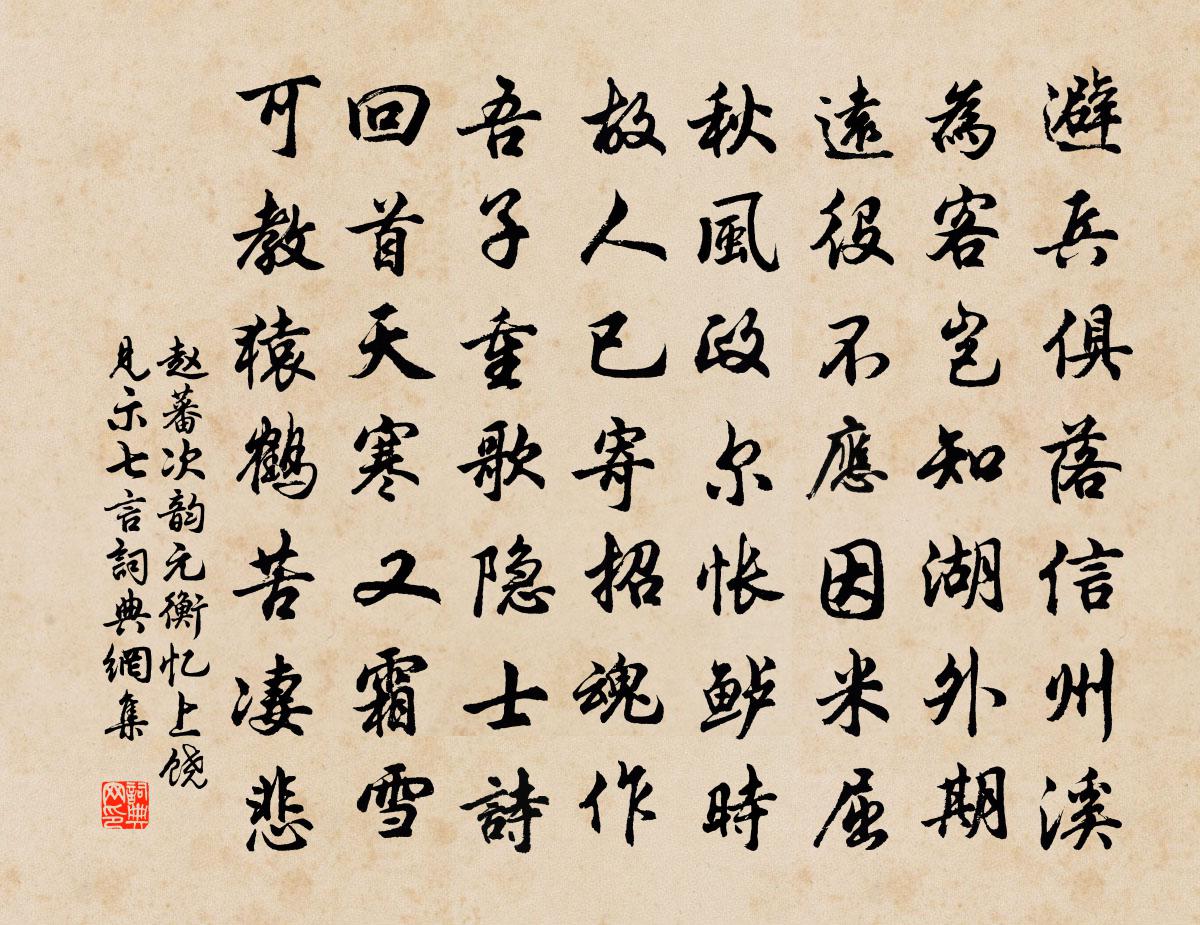 避兵俱落信州溪
為客岂知湖外期
遠役不應因米屈
秋風政尔怅鲈時
故人已寄招魂作
吾子重歌隐士詩
回首天寒又霜雪
可教猿鶴苦凄悲
赵蕃次韵元衡忆上饶
見示七言詞典網集
詞典网印